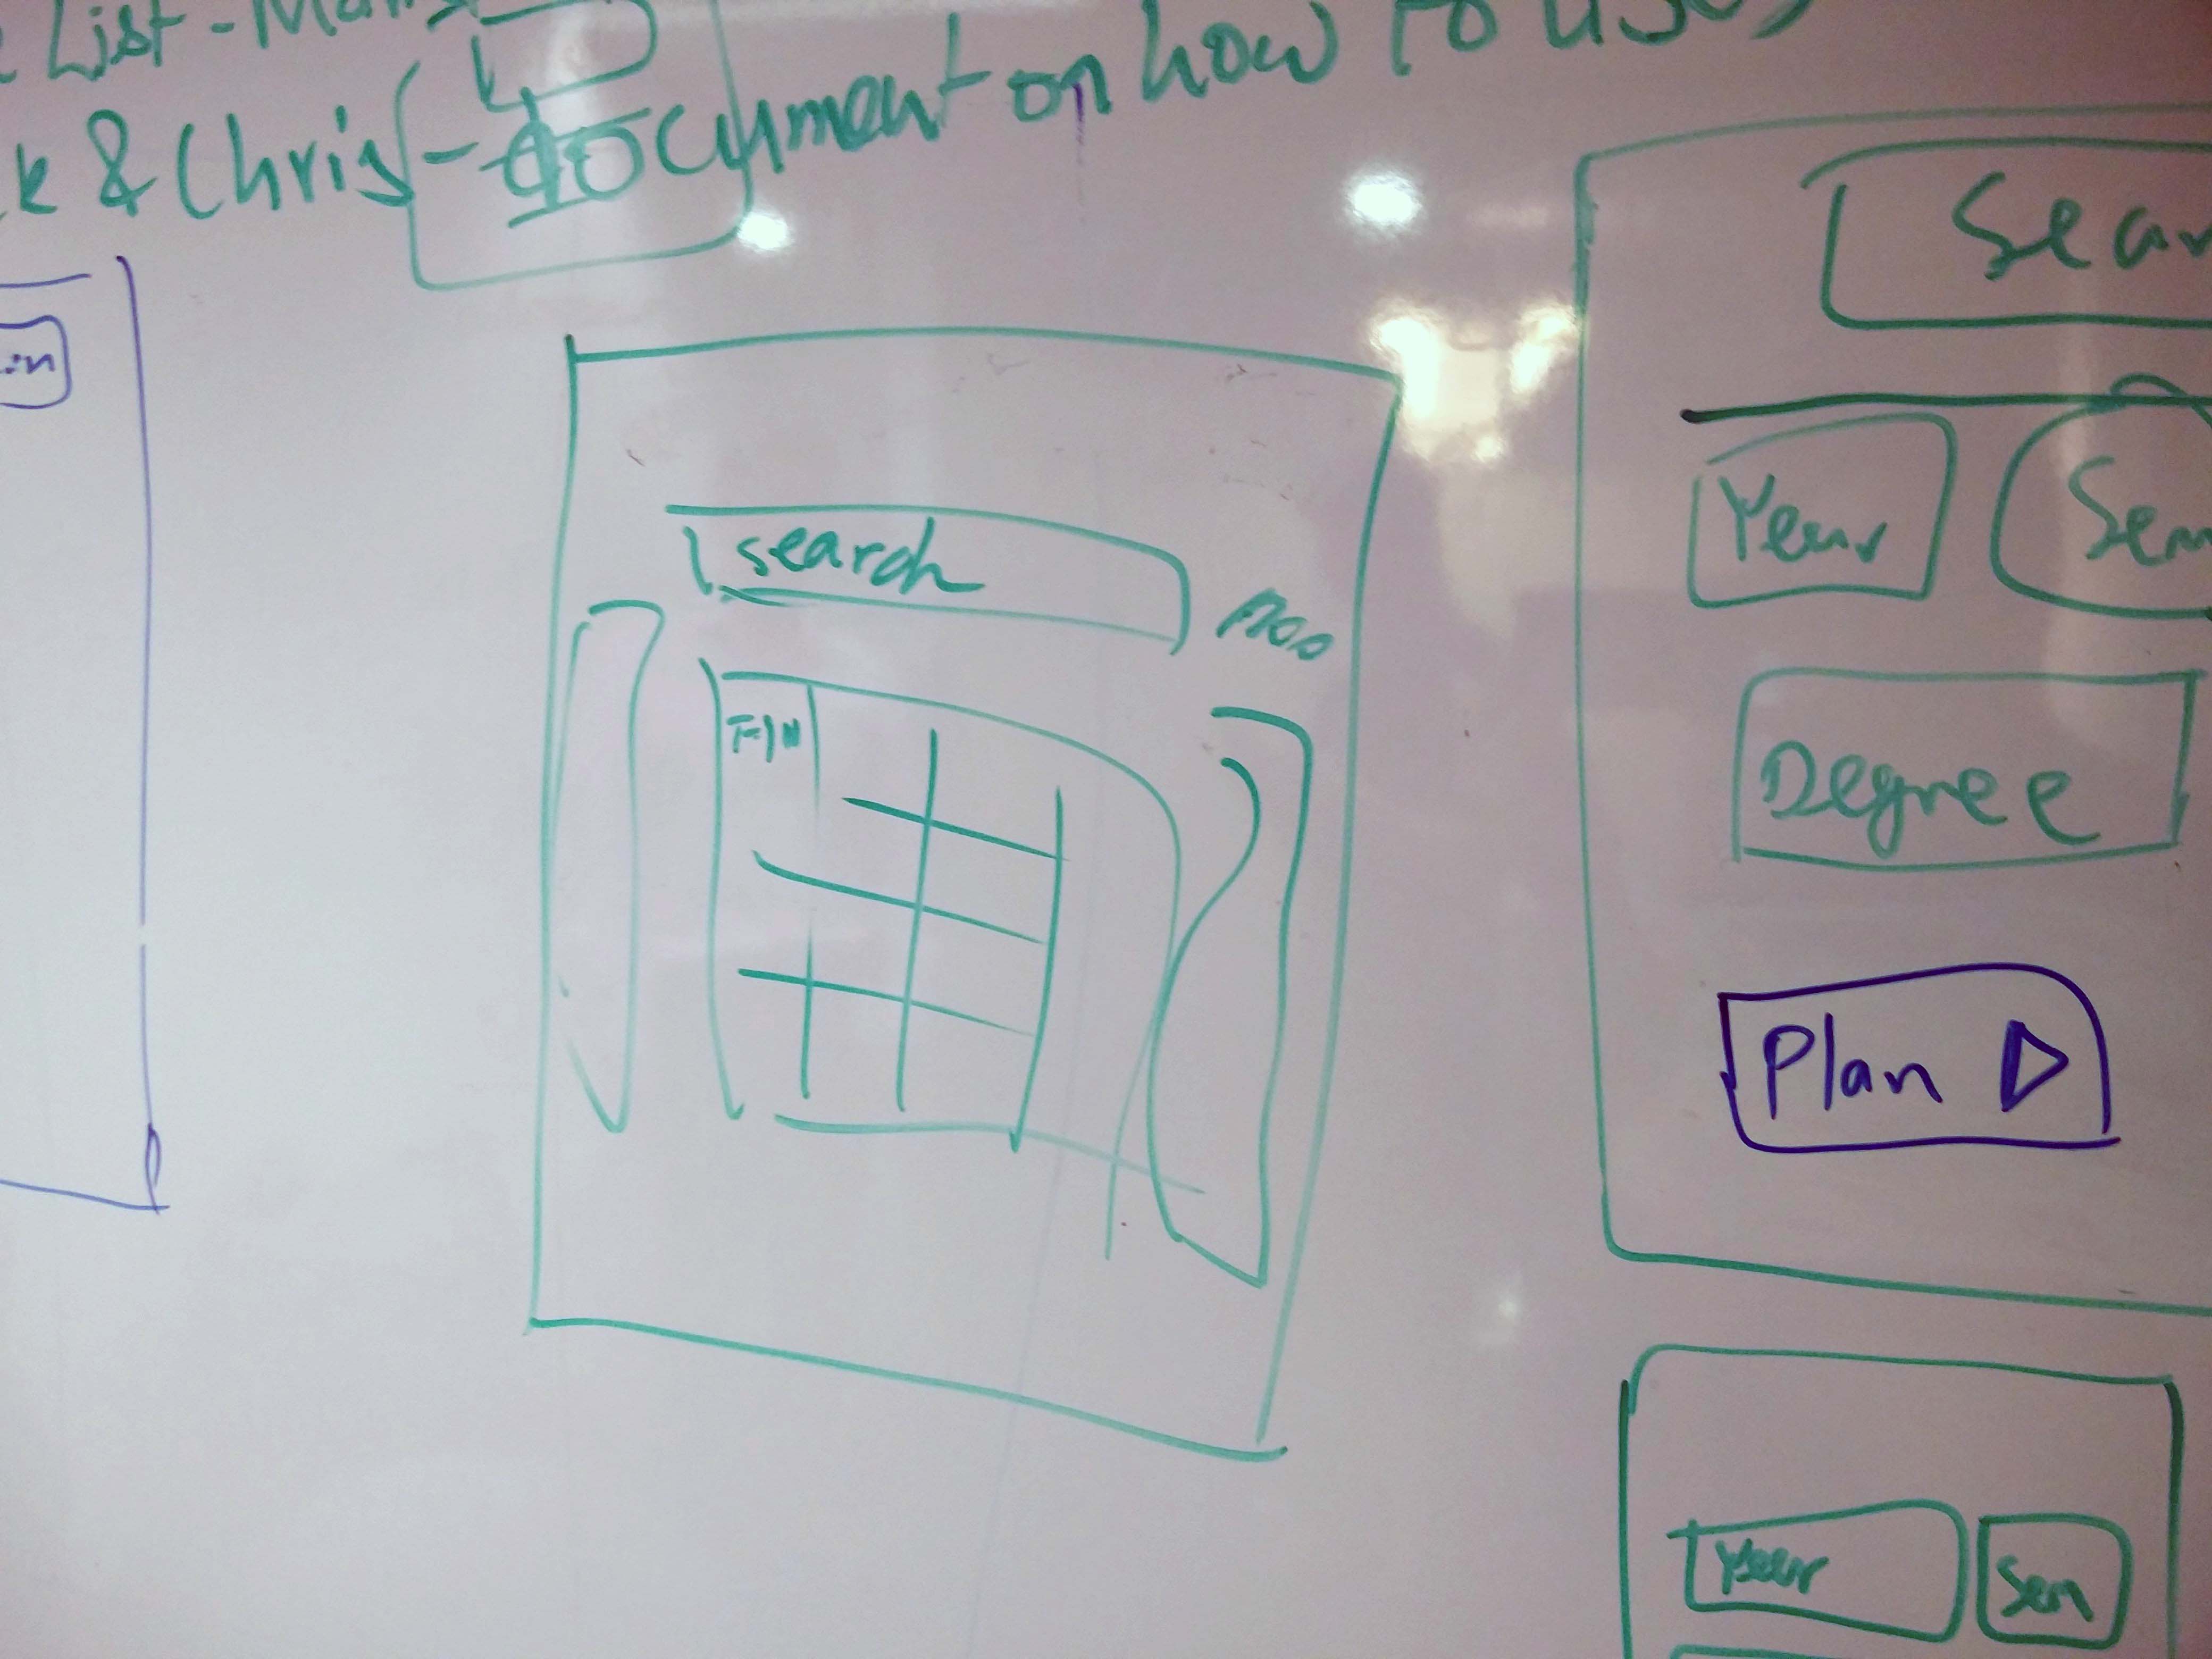 List - 
k & Chris - document on how to use
in
Sear
search
Year Sem
Degree
Plan
Year Sem